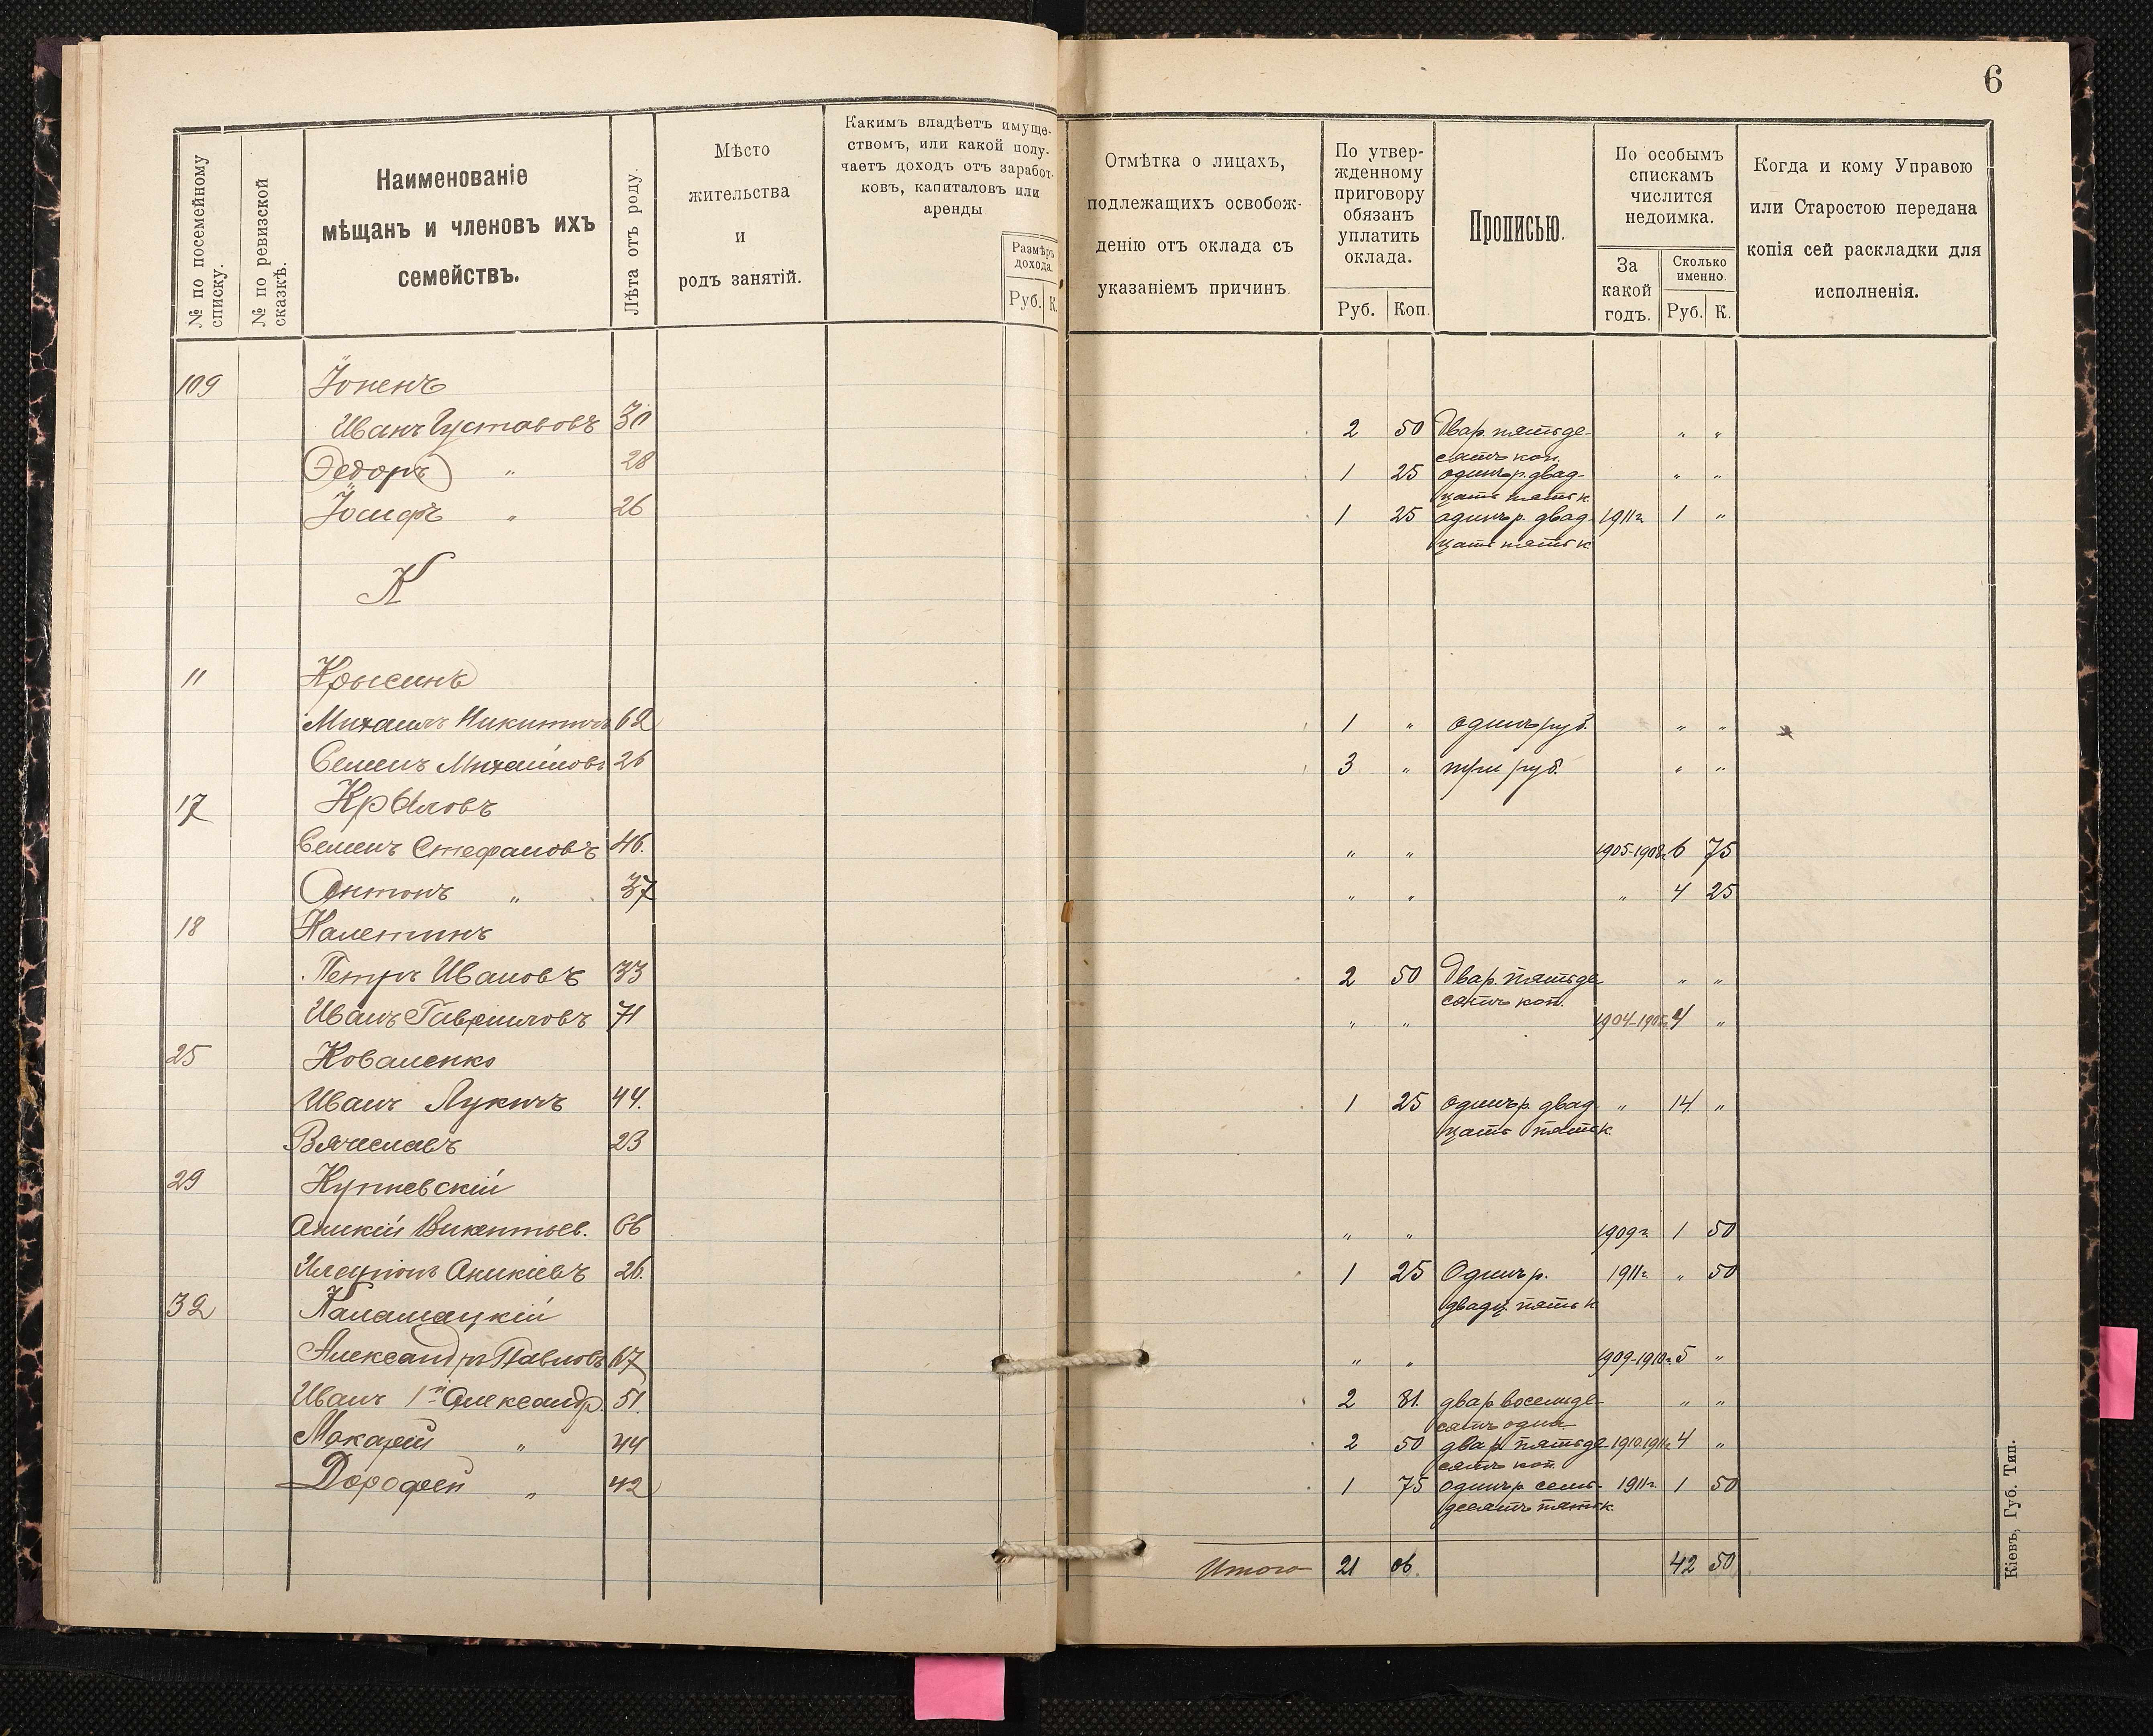 6
№ по посемейному списку.
№ по ревизской сказкѣ.
Наименованіе
мѣщанъ и членовъ ихъ
семействъ.
Лѣта отъ роду.
Мѣсто
жительства
и
родъ занятій.
Какимъ владѣетъ имуще-
ствомъ, или какой полу-
чаетъ доходъ отъ заработ-
ковъ, капиталовъ или
аренды
Размѣръ
дохода.
Руб. К.
Отмѣтка о лицахъ,
подлежащихъ освобож-
денію отъ оклада съ
указаніемъ причинъ.
По утвер-
жденному
приговору
обязанъ
уплатить
оклада.
Руб. Коп.
Прописью.
По особымъ
спискамъ
числится
недоимка.
За
какой
годъ.
Сколько
именно.
Руб. К.
Когда и кому Управою
или Старостою передана
копія сей раскладки для
исполненія.
109
Иванъ Густавовъ 30 2 50 Два р. пятьде- " "
сятъ коп.
Ѳедоръ " 28 1 25 одинъ р. двад- " "
цать пять к.
Іосифъ " 26 1 25 одинъ р. двад- 1911 г. 1 "
цать пять к
К
11 Крысинъ
Михаилъ Никитичъ 62 1 " одинъ руб. " "
Семенъ Михайловъ 26 3 " три руб. " "
17 Крыловъ
Семенъ Стефановъ 46. " " 1905-1908 г. 6 75
Антонъ " 37 " " " 4 25
18 Калетинъ
Петръ Ивановъ 33 2 50 Два р. пятьде " "
сятъ коп.
Иванъ Гавриловъ 71 " " 1904-1905 г. 4 "
25 Коваленко
Иванъ Лукичъ 44. 1 25 Одинъ р. двад " 14. "
цать пять к.
Вячеславъ 23
29
Аникій Викентьев. 66 " " 1909 г. 1 50
Аникіевъ 26. 1 25 Одинъ р. 1911 г. " 50
двадц. пять к
32
Александръ Павловъ 67 " " 1909-1910 г. 5 "
Иванъ 1й Александр. 51. 2 81. два р. восемьде- " "
сятъ одна
Макарій " 44 2 50 два р. пятьде- 1910-1911 г. 4 "
сятъ коп.
Дорофей " 42 1 75 одинъ р. семь- 1911 г. 1 50
десятъ пять к.
Итого 21 06. 42 50
Кіевъ, Губ. Тип.